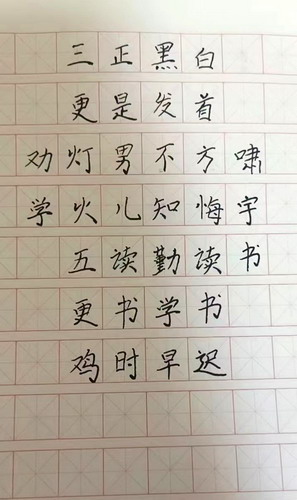 三正黑白
更是发首
劝灯男不方啸
学火儿知悔字
五读勤读书
更书学书
鸡时早迟